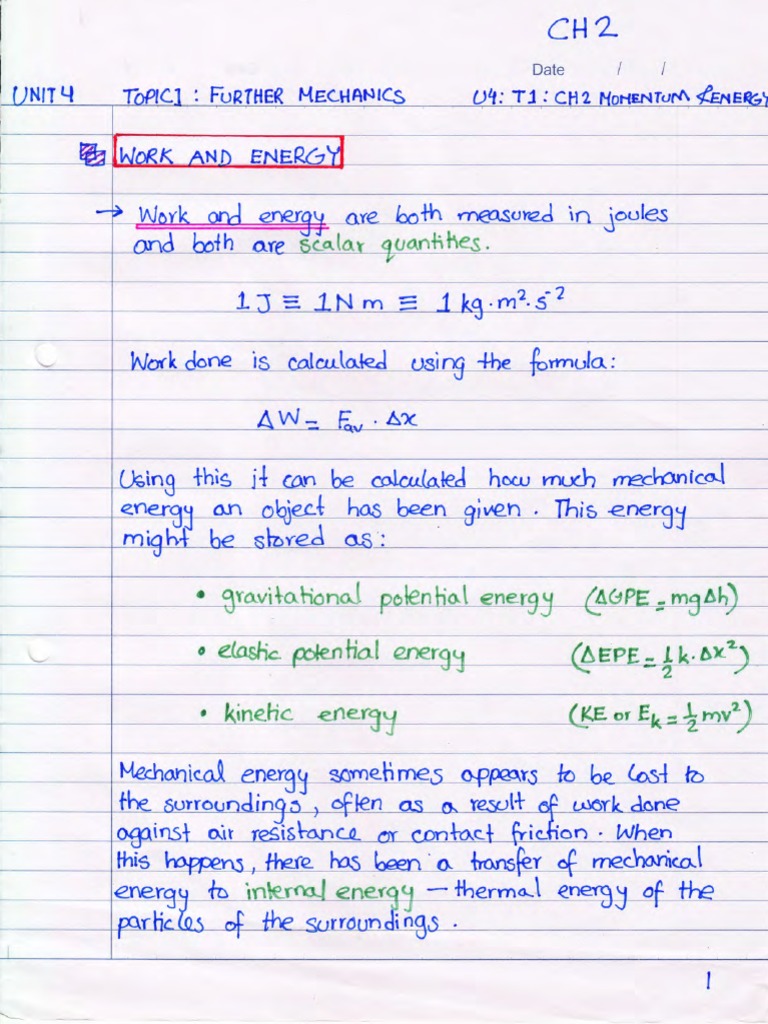 CH 2
Date / /
UNIT 4 TOPIC 1 : FURTHER MECHANICS U4: T1: CH2 MOMENTUM & ENERGY
WORK AND ENERGY
→ Work and energy are both measured in joules
and both are scalar quantities.
1 J ≡ 1 N m ≡ 1 kg·m²·s⁻²
Work done is calculated using the formula:
ΔW = Fav · Δx
Using this it can be calculated how much mechanical
energy an object has been given. This energy
might be stored as:
• gravitational potential energy (ΔGPE = mgΔh)
• elastic potential energy (ΔEPE = 1/2 k·Δx²)
• kinetic energy (KE or Ek = 1/2 mv²)
Mechanical energy sometimes appears to be lost to
the surroundings, often as a result of work done
against air resistance or contact friction. When
this happens, there has been a transfer of mechanical
energy to internal energy – thermal energy of the
particles of the surroundings.
1